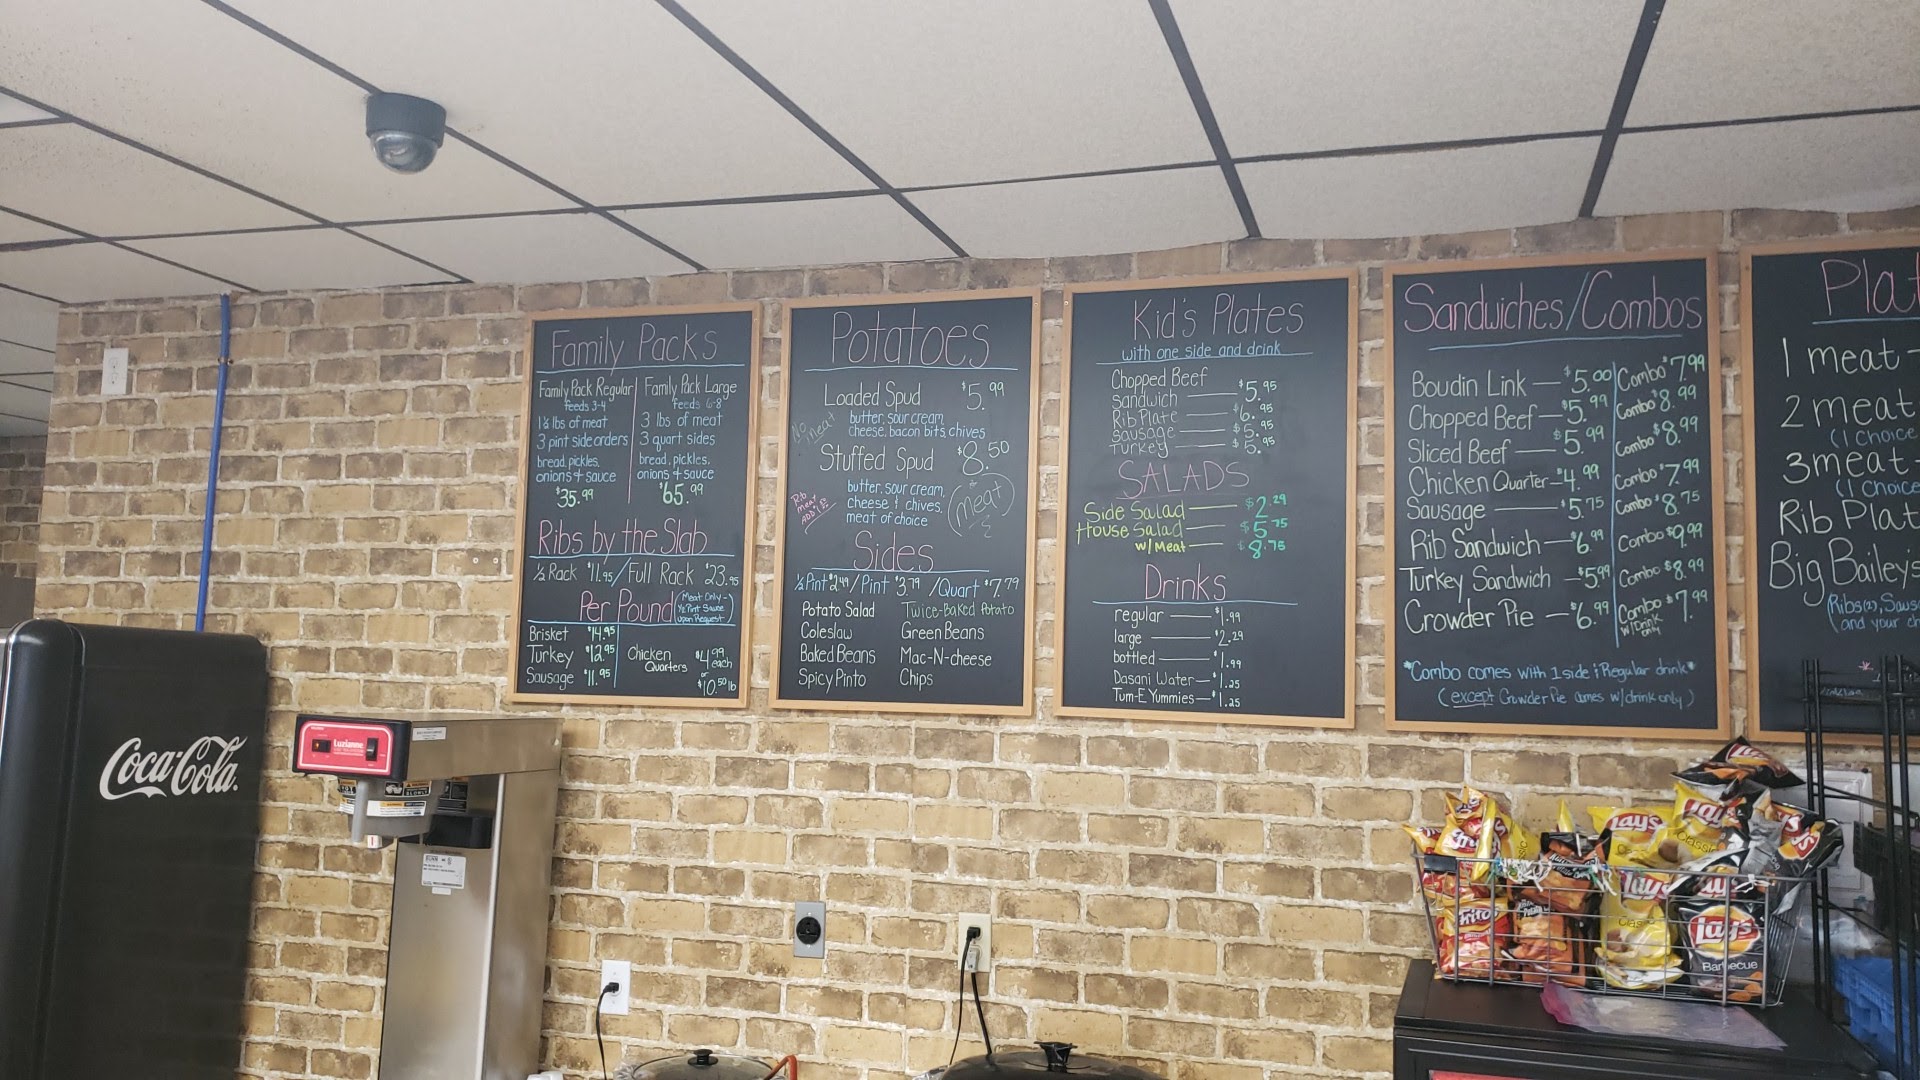 Family Packs
Family Pack Regular
feeds 3-4
1½ lbs of meat
3 pint side orders
bread, pickles,
onions & sauce
$35.99
Family Pack Large
feeds 6-8
3 lbs of meat
3 quart sides
bread, pickles,
onions & sauce
$65.99
Ribs by the Slab
½ Rack $11.95/Full Rack $23.95
Per Pound (Meat Only-
½ Pint Sauce
Upon Request)
Brisket $14.95
Turkey $12.95
Sausage $11.95
Chicken
Quarters
$4.99
each
or
$10.50 lb
Potatoes
Loaded Spud $5.99
No
Meat
butter, sour cream,
cheese, bacon bits, chives
Stuffed Spud $8.50
Rib
Meat
butter, sour cream,
cheese & chives,
meat of choice
(Meat)
Sides
½ Pint $2.49 / Pint $3.79 / Quart $7.79
Potato Salad Twice-Baked Potato
Coleslaw Green Beans
Baked Beans Mac-N-cheese
Spicy Pinto Chips
Kid's Plates
with one side and drink
Chopped Beef
Sandwich — $5.95
Rib Plate — $6.95
Sausage — $5.95
Turkey — $5.95
SALADS
Side Salad — $2.29
House Salad — $5.75
w/Meat — $8.75
Drinks
regular — $1.99
large — $2.29
bottled — $1.99
Dasani Water — $1.25
Tum-E Yummies — $1.25
Sandwiches/Combos
Boudin Link — $5.00 Combo $7.99
Chopped Beef — $5.99 Combo $8.99
Sliced Beef — $5.99 Combo $8.99
Chicken Quarter — $4.99 Combo $7.99
Sausage — $5.75 Combo $8.75
Rib Sandwich — $6.99 Combo $9.99
Turkey Sandwich — $5.99 Combo $8.99
Crowder Pie — $6.99 Combo $7.99
w/Drink
only
*Combo comes with 1 side & Regular drink*
(except Crowder Pie comes w/drink only)
Plat
1 meat -
2 meat
(1 choice
3 meat -
(1 choice
Rib Plat
Big Bailey's
(Ribs(2), Saus
and your ch
Coca-Cola
Luzianne
Fritos
Lay's
Classic
Lay's
Barbecue